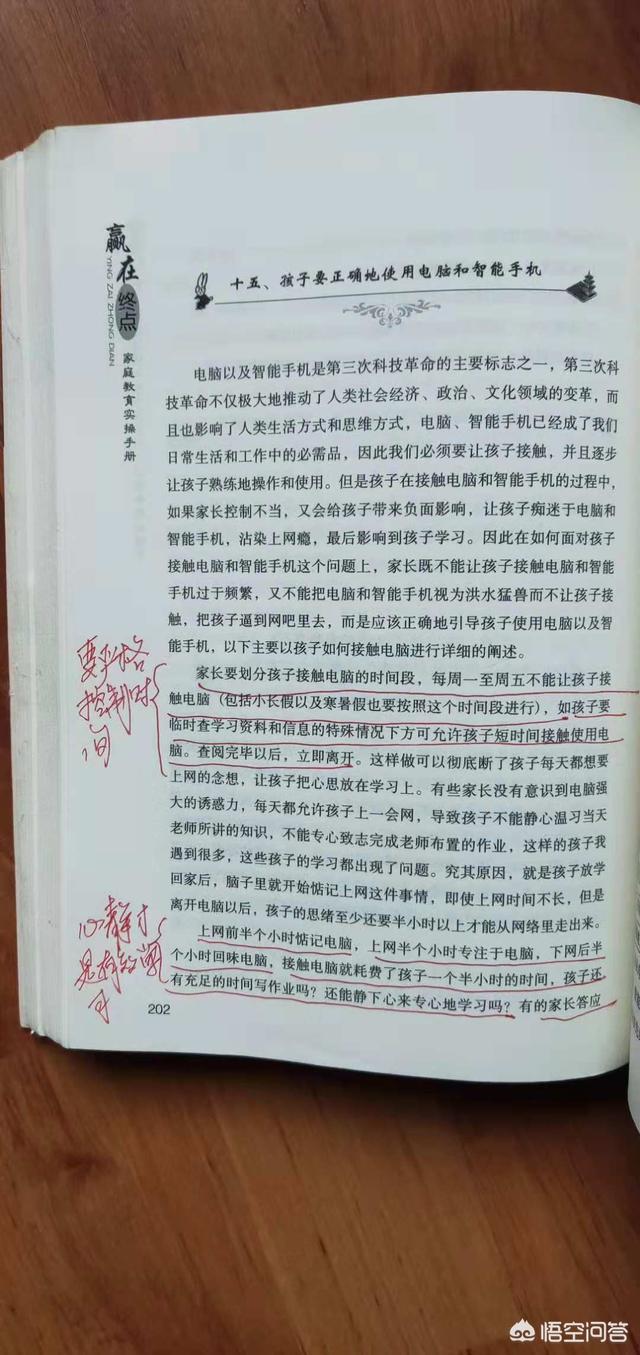 赢在终点
YING ZAI ZHONG DIAN
家庭教育实操手册
十五、孩子要正确地使用电脑和智能手机
电脑以及智能手机是第三次科技革命的主要标志之一，第三次科
技革命不仅极大地推动了人类社会经济、政治、文化领域的变革，而
且也影响了人类生活方式和思维方式，电脑、智能手机已经成了我们
日常生活和工作中的必需品，因此我们必须要让孩子接触，并且逐步
让孩子熟练地操作和使用。但是孩子在接触电脑和智能手机的过程中，
如果家长控制不当，又会给孩子带来负面影响，让孩子痴迷于电脑和
智能手机，沾染上网瘾，最后影响到孩子学习。因此在如何面对孩子
接触电脑和智能手机这个问题上，家长既不能让孩子接触电脑和智能
手机过于频繁，又不能把电脑和智能手机视为洪水猛兽而不让孩子接
触，把孩子逼到网吧里去，而是应该正确地引导孩子使用电脑以及智
能手机，以下主要以孩子如何接触电脑进行详细的阐述。
家长要划分孩子接触电脑的时间段，每周一至周五不能让孩子接
触电脑（包括小长假以及寒暑假也要按照这个时间段进行），如孩子要
临时查学习资料和信息的特殊情况下方可允许孩子短时间接触使用电
脑。查阅完毕以后，立即离开。这样做可以彻底断了孩子每天都想要
上网的念想，让孩子把心思放在学习上。有些家长没有意识到电脑强
大的诱惑力，每天都允许孩子上一会网，导致孩子不能静心温习当天
老师所讲的知识，不能专心致志完成老师布置的作业，这样的孩子我
遇到很多，这些孩子的学习都出现了问题。究其原因，就是孩子放学
回家后，脑子里就开始惦记上网这件事情，即使上网时间不长，但是
离开电脑以后，孩子的思绪至少还要半小时以上才能从网络里走出来。
上网前半个小时惦记电脑，上网半个小时专注于电脑，下网后半
个小时回味电脑，接触电脑就耗费了孩子一个半小时的时间，孩子还
有充足的时间写作业吗？还能静下心来专心地学习吗？有的家长答应
202
要严格
控制时
间
心静才
是有效
悟空问答